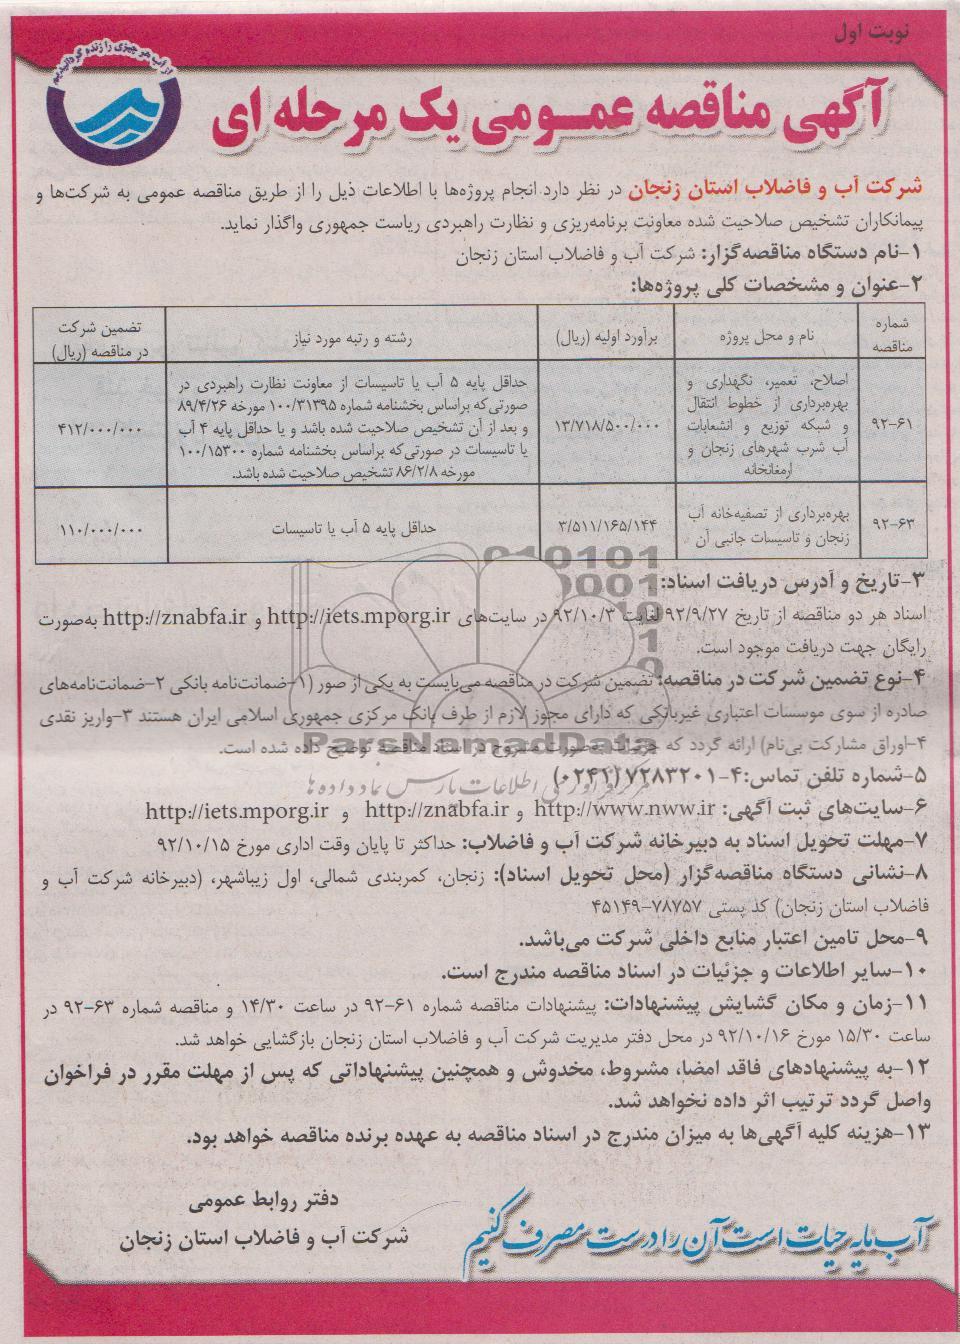 نوبت اول
از آب هر چیزی را زنده گردانیدیم
آگهی مناقصه عمـومی یک مرحله ای
شرکت آب و فاضلاب استان زنجان در نظر دارد انجام پروژه‌ها با اطلاعات ذیل را از طریق مناقصه عمومی به شرکت‌ها و
پیمانکاران تشخیص صلاحیت شده معاونت برنامه‌ریزی و نظارت راهبردی ریاست جمهوری واگذار نماید.
۱-نام دستگاه مناقصه‌گزار: شرکت آب و فاضلاب استان زنجان
۲-عنوان و مشخصات کلی پروژه‌ها:
شماره مناقصه | نام و محل پروژه | برآورد اولیه (ریال) | رشته و رتبه مورد نیاز | تضمین شرکت در مناقصه (ریال)
۹۲-۶۱
اصلاح، تعمیر، نگهداری و
بهره‌برداری از خطوط انتقال
و شبکه توزیع و انشعابات
آب شرب شهرهای زنجان و
ارمغانخانه
۱۳/۷۱۸/۵۰۰/۰۰۰
حداقل پایه ۵ آب یا تاسیسات از معاونت نظارت راهبردی در
صورتی‌که براساس بخشنامه شماره ۱۰۰/۳۱۳۹۵ مورخه ۸۹/۴/۲۶
و بعد از آن تشخیص صلاحیت شده باشد و یا حداقل پایه ۴ آب
یا تاسیسات در صورتی‌که براساس بخشنامه شماره ۱۰۰/۱۵۳۰۰
مورخه ۸۶/۲/۸ تشخیص صلاحیت شده باشد.
۴۱۲/۰۰۰/۰۰۰
۹۲-۶۳
بهره‌برداری از تصفیه‌خانه آب
زنجان و تاسیسات جانبی آن
۳/۵۱۱/۱۶۵/۱۴۴
حداقل پایه ۵ آب یا تاسیسات
۱۱۰/۰۰۰/۰۰۰
۳-تاریخ و آدرس دریافت اسناد:
اسناد هر دو مناقصه از تاریخ ۹۲/۹/۲۷ لغایت ۹۲/۱۰/۳ در سایت‌های http://iets.mporg.ir و http://znabfa.ir به‌صورت
رایگان جهت دریافت موجود است.
۴-نوع تضمین شرکت در مناقصه: تضمین شرکت در مناقصه می‌بایست به یکی از صور (۱-ضمانت‌نامه بانکی ۲-ضمانت‌نامه‌های
صادره از سوی موسسات اعتباری غیربانکی که دارای مجوز لازم از طرف بانک مرکزی جمهوری اسلامی ایران هستند ۳-واریز نقدی
۴-اوراق مشارکت بی‌نام) ارائه گردد که جزئیات به‌صورت مشروح در اسناد مناقصه توضیح داده شده است.
ParsNamadData
۵-شماره تلفن تماس:۴-۷۲۸۳۲۰۱(۰۲۴۱)
مرکز فرآوری اطلاعات پارس نماد داده ها
۶-سایت‌های ثبت آگهی: http://www.nww.ir و http://znabfa.ir و http://iets.mporg.ir
۷-مهلت تحویل اسناد به دبیرخانه شرکت آب و فاضلاب: حداکثر تا پایان وقت اداری مورخ ۹۲/۱۰/۱۵
۸-نشانی دستگاه مناقصه‌گزار (محل تحویل اسناد): زنجان، کمربندی شمالی، اول زیباشهر، (دبیرخانه شرکت آب و
فاضلاب استان زنجان) کد پستی ۷۸۷۵۷-۴۵۱۴۹
۹-محل تامین اعتبار منابع داخلی شرکت می‌باشد.
۱۰-سایر اطلاعات و جزئیات در اسناد مناقصه مندرج است.
۱۱-زمان و مکان گشایش پیشنهادات: پیشنهادات مناقصه شماره ۶۱-۹۲ در ساعت ۱۴/۳۰ و مناقصه شماره ۶۳-۹۲ در
ساعت ۱۵/۳۰ مورخ ۹۲/۱۰/۱۶ در محل دفتر مدیریت شرکت آب و فاضلاب استان زنجان بازگشایی خواهد شد.
۱۲-به پیشنهادهای فاقد امضا، مشروط، مخدوش و همچنین پیشنهاداتی که پس از مهلت مقرر در فراخوان
واصل گردد ترتیب اثر داده نخواهد شد.
۱۳-هزینه کلیه آگهی‌ها به میزان مندرج در اسناد مناقصه به عهده برنده مناقصه خواهد بود.
دفتر روابط عمومی
شرکت آب و فاضلاب استان زنجان
آب مایه حیات است آن را درست مصرف کنیم